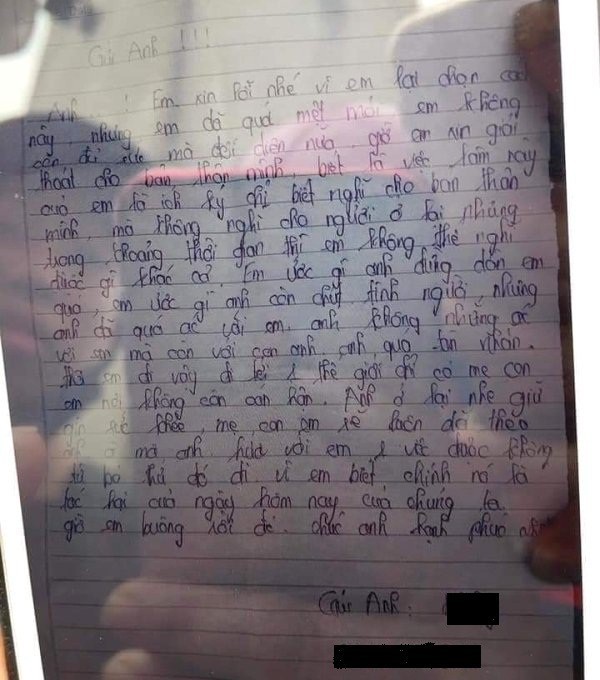 Gửi Anh !!!
Anh ! Em xin lỗi nhé vì em lại chọn cách
này, nhưng em đã quá mệt mỏi em không
còn đủ sức mà đối diện nữa, giờ em xin giải
thoát cho bản thân mình, biết là việc làm này
của em là ích kỷ chỉ biết nghĩ cho bản thân
mình, mà không nghĩ cho người ở lại nhưng
trong khoảng thời gian thì em không thể nghĩ
được gì khác cả. Em ước gì anh đừng dồn em
quá, em ước gì anh còn chút tình người nhưng
anh đã quá ác với em, anh không những ác
với em mà còn với con anh, anh quá tàn nhẫn.
Thà em đi vậy đi tới 1 thế giới chỉ có mẹ con
em nơi không còn oán hận. Anh ở lại nhé giữ
gìn sức khỏe, mẹ con em sẽ luôn dõi theo
mà anh hứa với em 1 việc được không
từ bỏ thứ đó đi vì em biết chính nó là
tác hại của ngày hôm nay của chúng ta.
giờ em buông rồi đó. chúc anh hạnh phúc nhé
Gửi Anh: